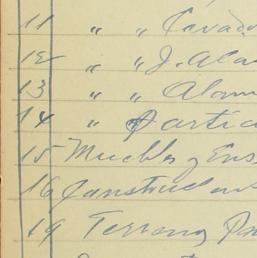 11 " " Cavad
12 " " J. Ala
13 " " Alon
14 " Partic
15 Muebles y Ens
16 Construc
19 Terreno